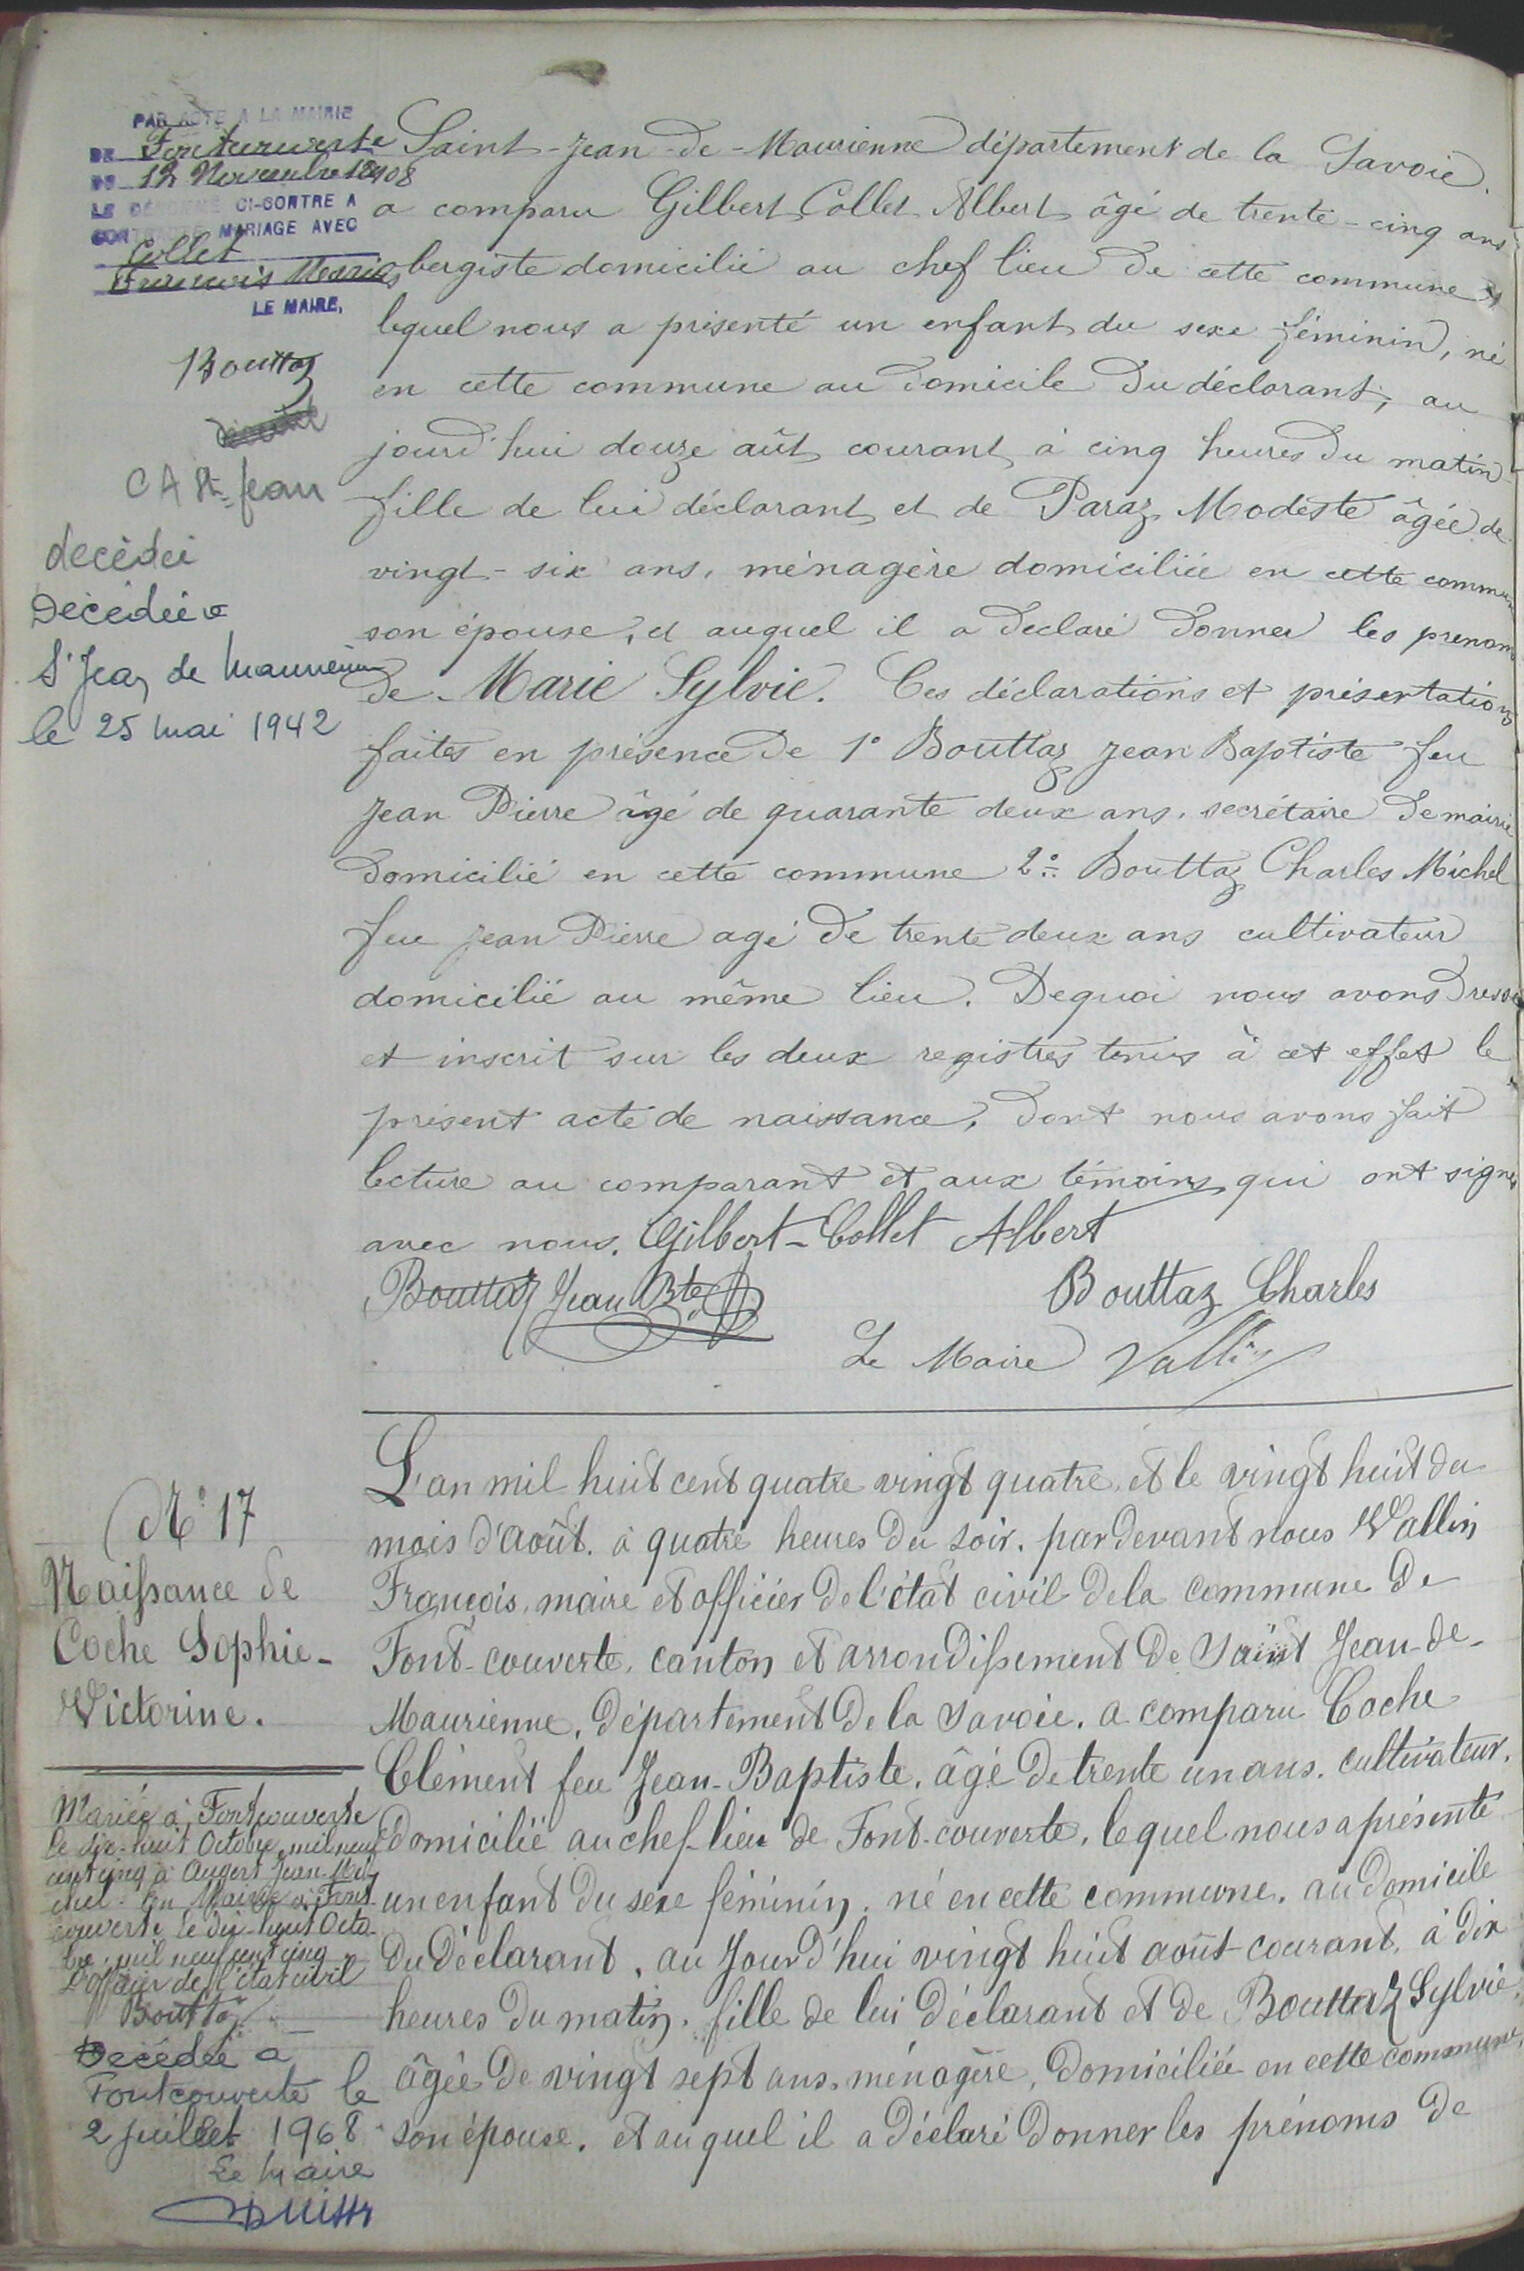 PAR ACTE A LA MAIRIE
DE Fontcouverte
DU 12 Novembre 1908
LE DÉNOMMÉ CI-CONTRE A
CONTRACTÉ MARIAGE AVEC
Collet
François Marie
LE MAIRE,
Bouttaz
CA St-Jean
decèdei
Décédée a
St Jean de Maurienne
le 25 mai 1942
Saint-Jean-de-Maurienne département de la Savoie.
a comparu Gilbert Collet Albert âgé de trente-cinq ans
bergiste domicilié au chef lieu de cette commune
lequel nous a présenté un enfant du sexe féminin, né
en cette commune au domicile du déclarant, au
jourd'hui douze aût courant à cinq heures du matin
fille de lui déclarant et de Paraz Modeste âgée de
vingt-six ans, ménagère domiciliée en cette commune
son épouse, et auquel il a declaré donner les prenoms
de Marie Sylvie. Ces déclarations et présentations
faites en présence de 1° Bouttaz Jean Baptiste feu
Jean Pierre âgé de quarante deux ans, secrétaire de mairie
domicilié en cette commune 2° Bouttaz Charles Michel
feu Jean Pierre agé de trente deux ans cultivateur
domicilié au même lieu. De quoi nous avons dressé
et inscrit sur les deux registres tenus à cet effet le
présent acte de naissance, dont nous avons fait
lecture au comparant et aux témoins qui ont signé
avec nous. Gilbert-Collet Albert
Bouttaz Jean Bte
Bouttaz Charles
Le Maire Vallin
N° 17
Naissance de
Coche Sophie-
Victorine.
Mariée à Fontcouverte
le dix-huit Octobre mil neuf
cent cinq à Augert Jean-Mi
chel. En Mairie à Font
couverte le dix-huit Octo
bre mil neuf cent cinq
L'officier de l'état civil
Bouttaz
Décédée a
Fontcouverte le
2 juillet 1968
Le Maire
L'an mil huit cent quatre vingt quatre, et le vingt huit du
mois d'août. à quatre heures du soir. par devant nous Vallin
François, maire et officier de l'état civil de la commune de
Font-couverte, canton et arrondissement de Saint Jean-de-
Maurienne, département de la Savoie. a comparu Coche
Clément feu Jean-Baptiste, âgé de trente un ans, cultivateur,
domicilié au chef-lieu de Font-couverte, lequel nous a présenté
un enfant du sexe féminin, né en cette commune, au domicile
du déclarant, au jourd'hui vingt huit août courant, à dix
heures du matin, fille de lui déclarant et de Bouttaz Sylvie,
âgée de vingt sept ans, ménagère, domiciliée en cette commune,
son épouse, et auquel il a déclaré donner les prénoms de